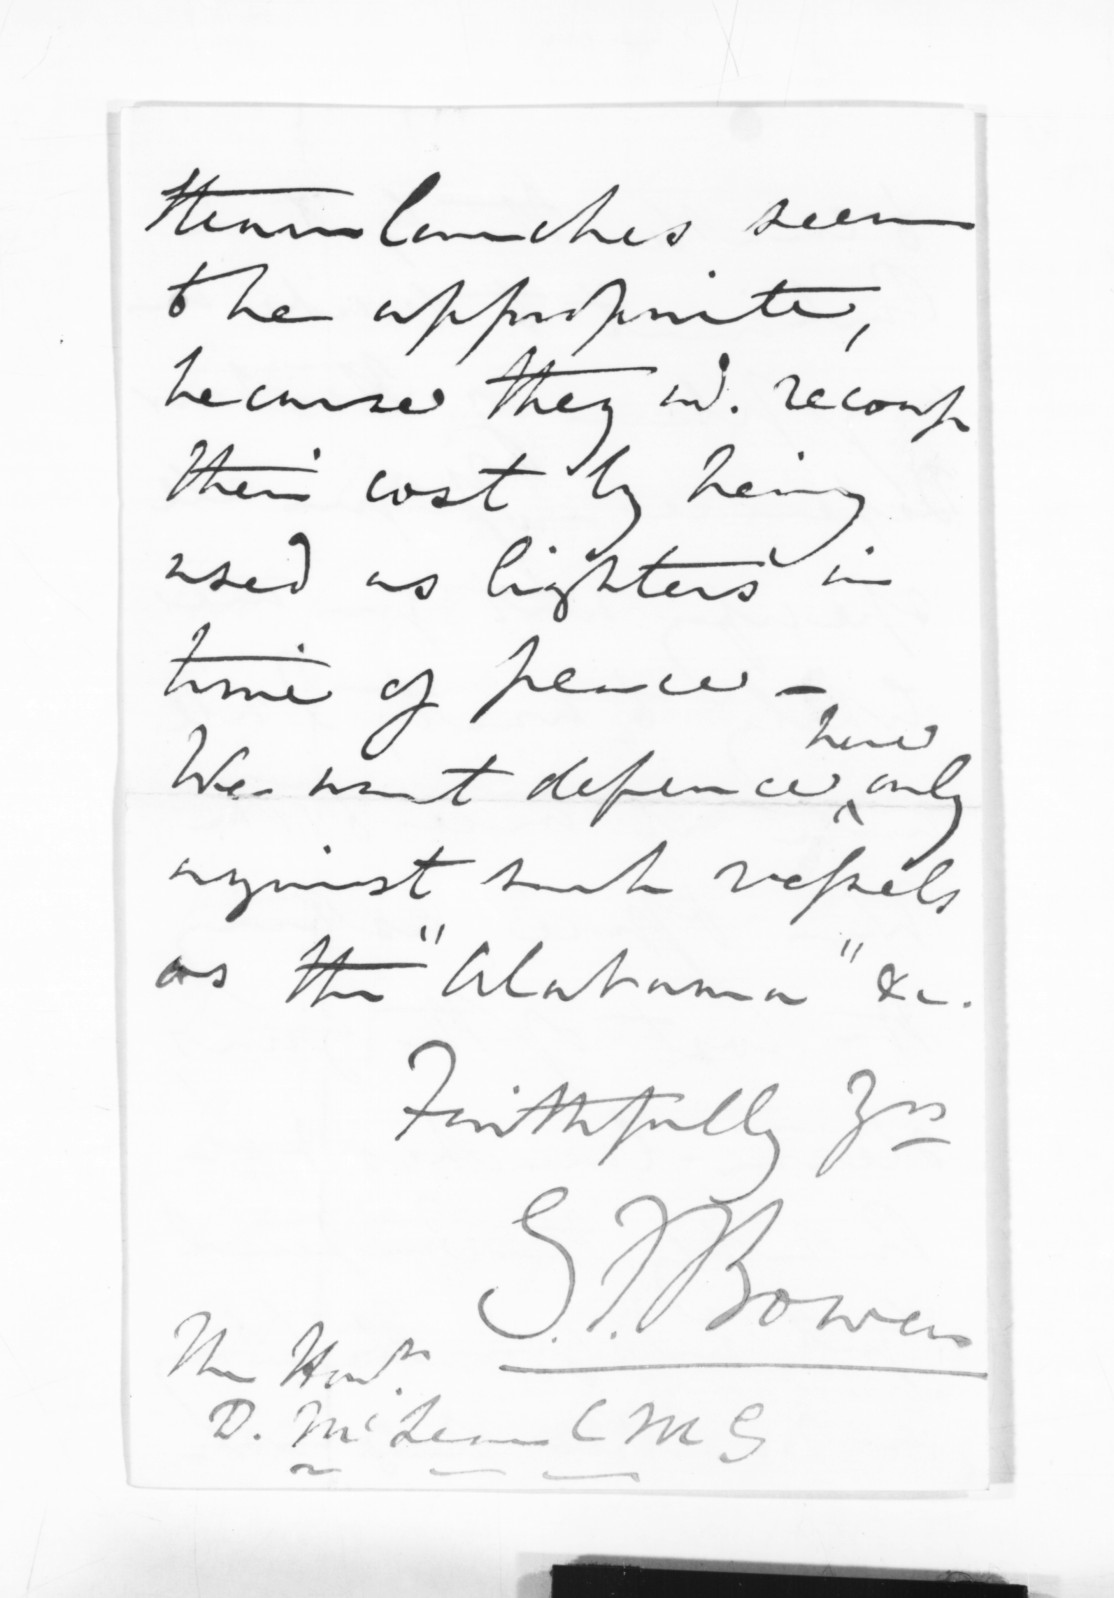 Steam launches seem
to be appropriate,
because they wd. recoup
their cost by being
used as lighters in
time of peace –
We want defence ^here only
against such vessels
as the "Alabama" &c.
Faithfully Yrs
G.F. Bowen
The Honble.
D. McLean CMG